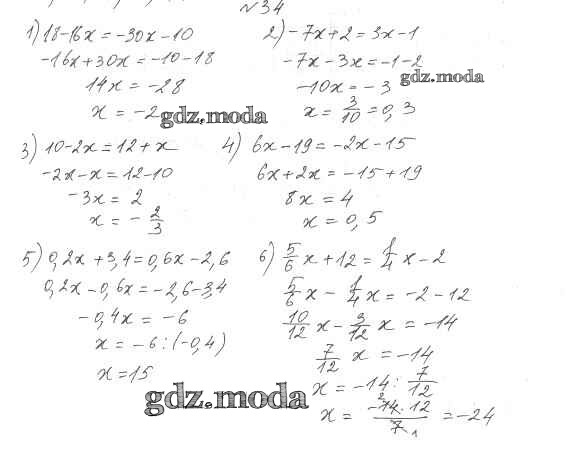 №34
1) 18-16x = -30x-10
-16x+30x = -10-18
14x = -28
x = -2
2) -7x+2 = 3x-1
-7x-3x = -1-2
-10x = -3
x = 3/10 = 0,3
3) 10-2x = 12+x
-2x-x = 12-10
-3x = 2
x = -2/3
4) 6x-19 = -2x-15
6x+2x = -15+19
8x = 4
x = 0,5
5) 0,2x+3,4 = 0,6x-2,6
0,2x-0,6x = -2,6-3,4
-0,4x = -6
x = -6:(-0,4)
x = 15
6) 5/6 x+12 = 1/4 x-2
5/6 x - 1/4 x = -2-12
10/12 x - 3/12 x = -14
7/12 x = -14
x = -14 : 7/12
x = -14·12/7 = -24
gdz.moda
gdz.moda
gdz.moda